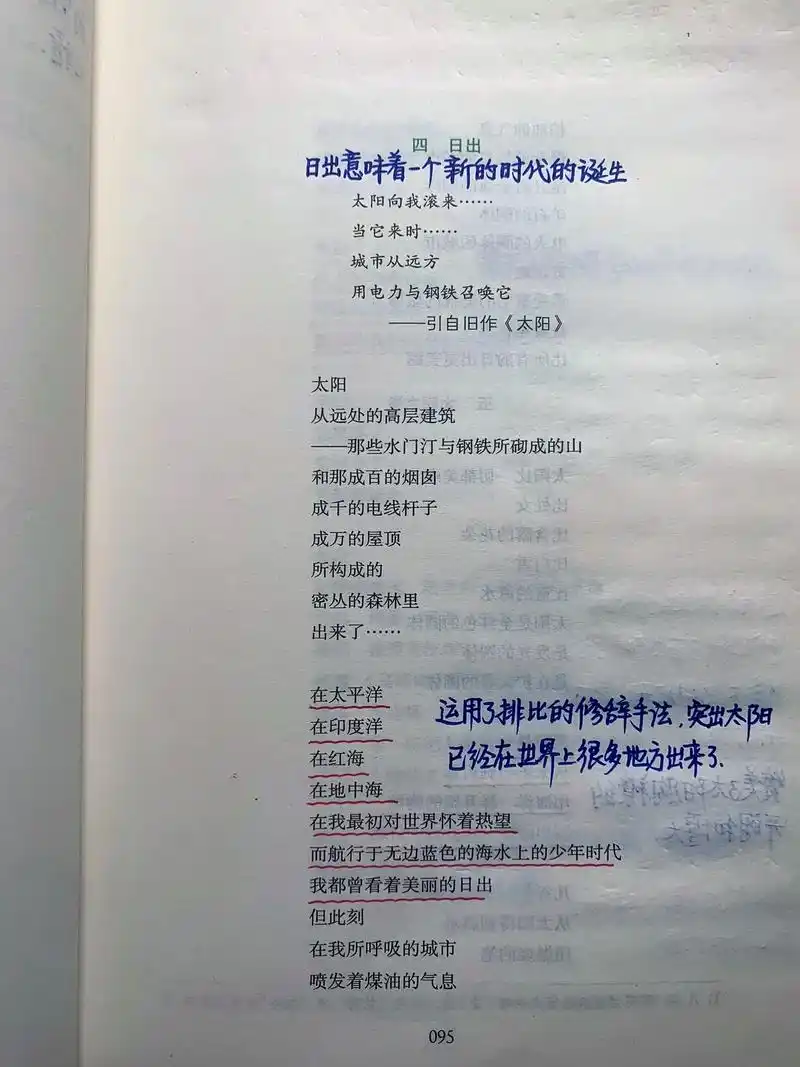 四 日出
日出意味着一个新的时代的诞生
太阳向我滚来……
当它来时……
城市从远方
用电力与钢铁召唤它
——引自旧作《太阳》
太阳
从远处的高层建筑
——那些水门汀与钢铁所砌成的山
和那成百的烟囱
成千的电线杆子
成万的屋顶
所构成的
密丛的森林里
出来了……
在太平洋
在印度洋
在红海
在地中海
在我最初对世界怀着热望
而航行于无边蓝色的海水上的少年时代
我都曾看着美丽的日出
运用了排比的修辞手法，突出太阳
已经在世界上很多地方出来了.
但此刻
在我所呼吸的城市
喷发着煤油的气息
095